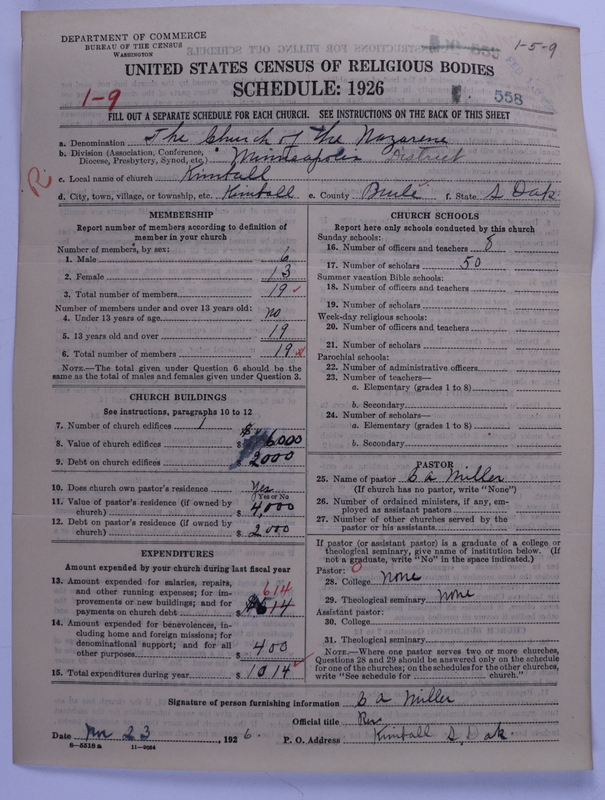 DEPARTMENT OF COMMERCE
BUREAU OF THE CENSUS
WASHINGTON
1-5-9
UNITED STATES CENSUS OF RELIGIOUS BODIES
SCHEDULE: 1926
1-9
558
FILL OUT A SEPARATE SCHEDULE FOR EACH CHURCH. SEE INSTRUCTIONS ON THE BACK OF THIS SHEET
a. Denomination The Church of the Nazarene
b. Division (Association, Conference, Diocese, Presbytery, Synod, etc.) Minneapolis District
c. Local name of church Kimball
d. City, town, village, or township, etc. Kimball e. County Brule f. State S Dak
R.
MEMBERSHIP
Report number of members according to definition of
member in your church
Number of members, by sex:
1. Male 6
2. Female 13
3. Total number of members 19
Number of members under and over 13 years old:
4. Under 13 years of age no
5. 13 years old and over 19
6. Total number of members 19
NOTE.—The total given under Question 6 should be the
same as the total of males and females given under Question 3.
CHURCH BUILDINGS
See instructions, paragraphs 10 to 12
7. Number of church edifices 1
8. Value of church edifices $ 6000
9. Debt on church edifices $ 2000
10. Does church own pastor's residence Yes
Yes or No
11. Value of pastor's residence (if owned by
church) $ 4,000
12. Debt on pastor's residence (if owned by
church) $ 2000
EXPENDITURES
Amount expended by your church during last fiscal year
13. Amount expended for salaries, repairs,
and other running expenses; for im-
provements or new buildings; and for
payments on church debt 614
$ 614
14. Amount expended for benevolences, in-
cluding home and foreign missions; for
denominational support; and for all
other purposes $ 400
15. Total expenditures during year $ 1014
CHURCH SCHOOLS
Report here only schools conducted by this church
Sunday schools:
16. Number of officers and teachers 8
17. Number of scholars 50
Summer vacation Bible schools:
18. Number of officers and teachers
19. Number of scholars
Week-day religious schools:
20. Number of officers and teachers
21. Number of scholars
Parochial schools:
22. Number of administrative officers
23. Number of teachers—
a. Elementary (grades 1 to 8)
b. Secondary
24. Number of scholars—
a. Elementary (grades 1 to 8)
b. Secondary
PASTOR
25. Name of pastor Miller
(If church has no pastor, write "None")
26. Number of ordained ministers, if any, em-
ployed as assistant pastors
27. Number of other churches served by the
pastor or his assistants
If pastor (or assistant pastor) is a graduate of a college or
theological seminary, give name of institution below. (If
not a graduate, write "No" in the space indicated.)
Pastor: 0
28. College none
29. Theological seminary none
Assistant pastor:
30. College
31. Theological seminary
NOTE.—Where one pastor serves two or more churches,
Questions 28 and 29 should be answered only on the schedule
for one of the churches; on the schedules for the other churches,
write "See schedule for church."
Signature of person furnishing information Miller
Official title Rev
Date 23, 1926. P. O. Address Kimball S, Dak.
8—5518 a 11—9064